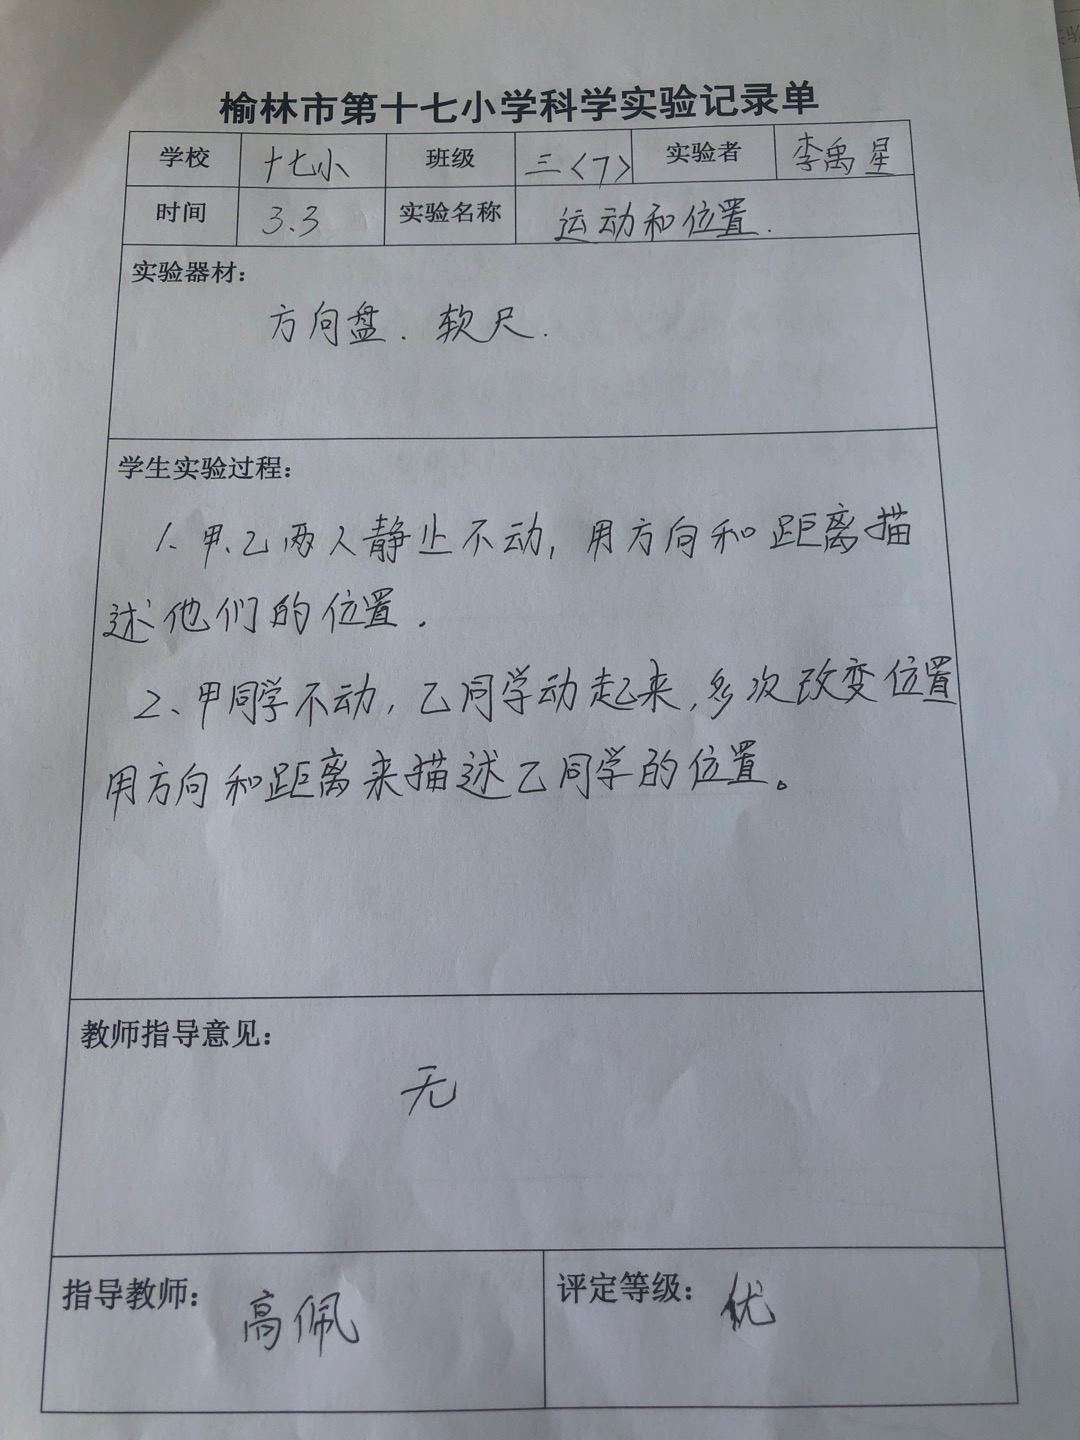 榆林市第十七小学科学实验记录单
学校 十七小 班级 三〈7〉 实验者 李禹星
时间 3.3 实验名称 运动和位置.
实验器材:
方向盘. 软尺.
学生实验过程:
1、甲、乙两人静止不动, 用方向和距离描
述他们的位置.
2、甲同学不动, 乙同学动起来, 多次改变位置
用方向和距离来描述乙同学的位置。
教师指导意见:
无
指导教师: 高佩 评定等级: 优